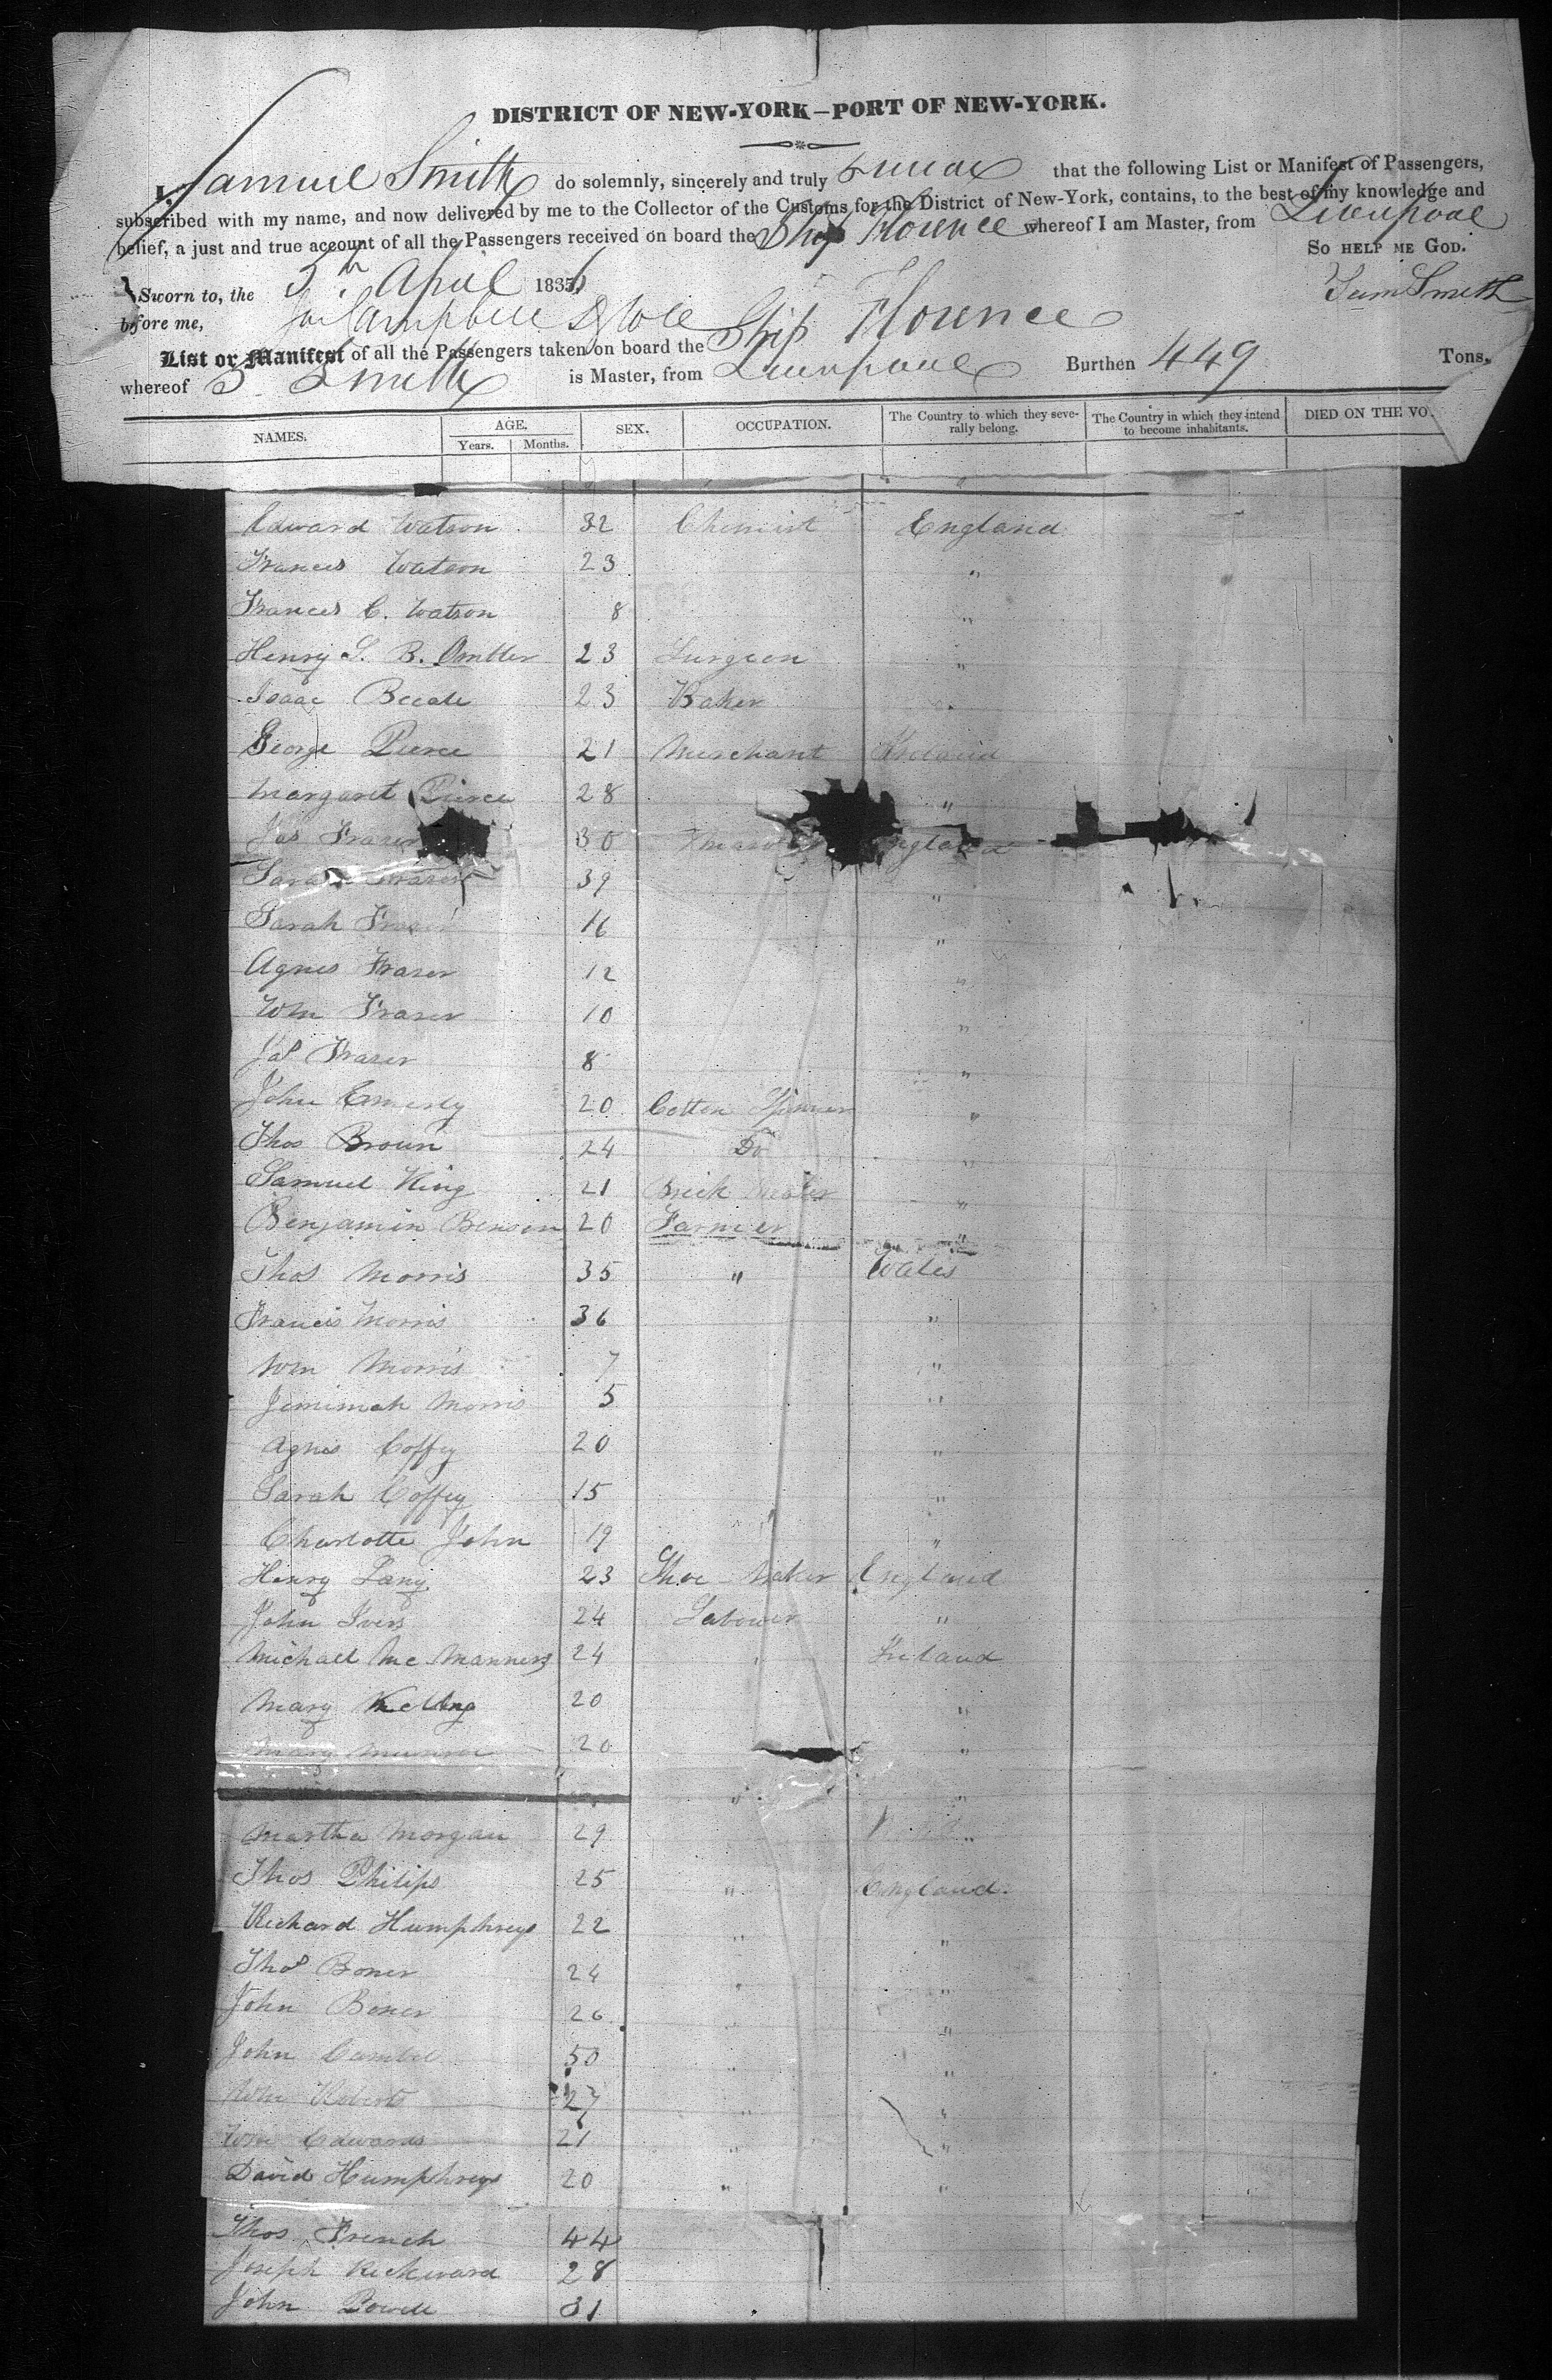 DISTRICT OF NEW-YORK—PORT OF NEW-YORK.
I, Samuel Smith do solemnly, sincerely and truly swear that the following List or Manifest of Passengers,
subscribed with my name, and now delivered by me to the Collector of the Customs for the District of New-York, contains, to the best of my knowledge and
belief, a just and true account of all the Passengers received on board the Ship Florence whereof I am Master, from Liverpool
So HELP ME GOD.
Sworn to, the April 183 Sam Smith
before me,
List or Manifest of all the Passengers taken on board the Ship Florence
whereof S Smith is Master, from Liverpool Burthen 449 Tons.
NAMES. AGE. Years. Months. SEX. OCCUPATION. The Country to which they severally belong. The Country in which they intend to become inhabitants. DIED ON THE VO
Edward Watson 32 Chemist England
Frances Watson 23 "
Frances C. Watson 8 "
Henry S. B. 23 Surgeon "
Isaac 23 Baker "
George Pierce 21 Merchant
Margaret Pierce 28 "
Jas Fraser 30 England
Sarah Fraser 39 "
Sarah Fraser 16 "
Agnes Fraser 12 "
Wm Fraser 10 "
Jas Fraser 8 "
John 20 Cotton Spinner "
Thos Brown 24 Do "
Samuel King 21 Brick "
Benjamin Benson 20 Farmer "
Thos Morris 35 " Wales
Francis Morris 36 "
Wm Morris 7 "
Jemimah Morris 5 "
Agnes Coffy 20 "
Sarah Coffey 15 "
Charlotte John 19 " "
Henry 23 Shoe Maker England
John Ivers 24 Labourer "
Michael Mc Manners 24 " Ireland
Mary 20 "
Mary 20 "
" "
Martha Morgan 29
Thos Philips 25 " England.
Richard Humphreys 22 " "
Thos Boner 24 " "
John Boner 26 " "
John 50 " "
Wm Roberts 27 " "
Wm Edwards 21 " "
David Humphreys 20 " "
Thos French 44
Joseph 28
John Powell 31